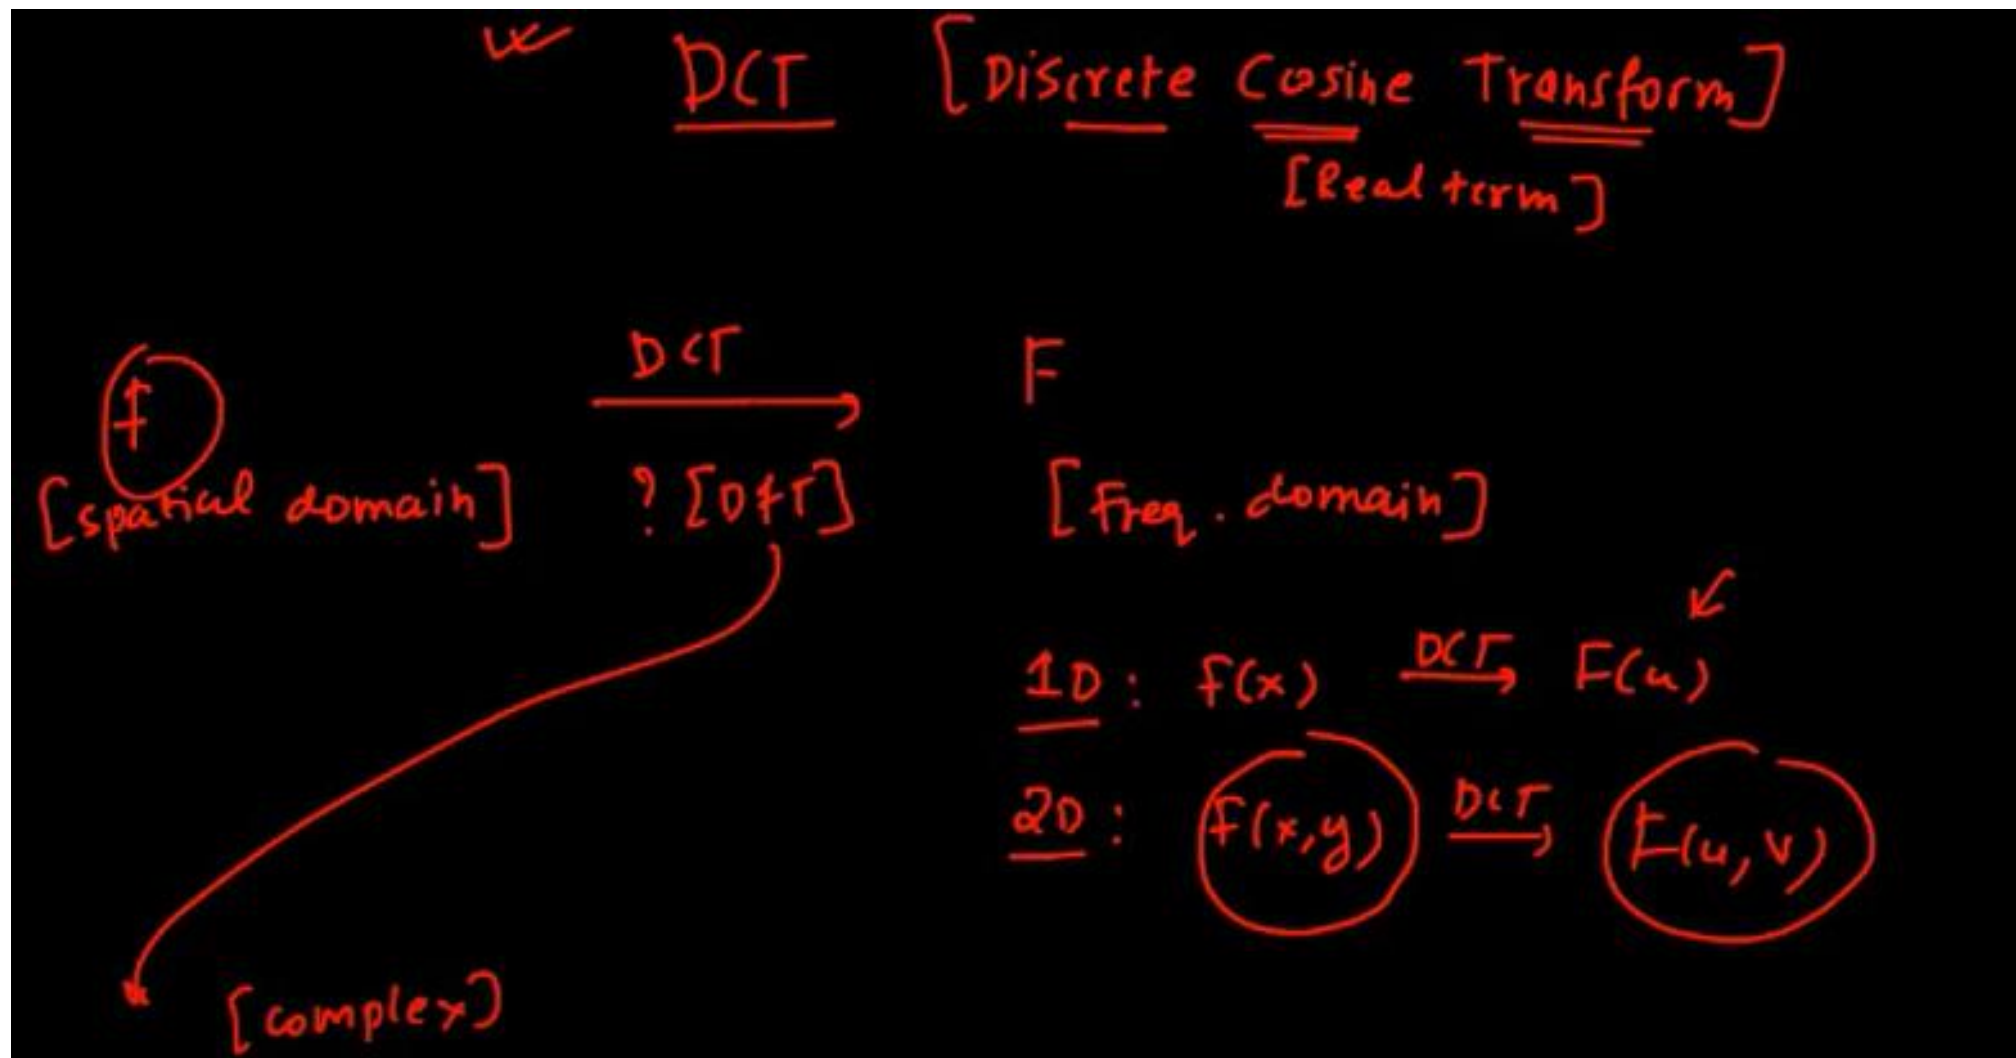 DCT [Discrete Cosine Transform]
[Real term]
f DCT F
[spatial domain] ? [DFT] [Freq. domain]
1D: f(x) DCT F(u)
2D: f(x,y) DCT F(u,v)
[complex]